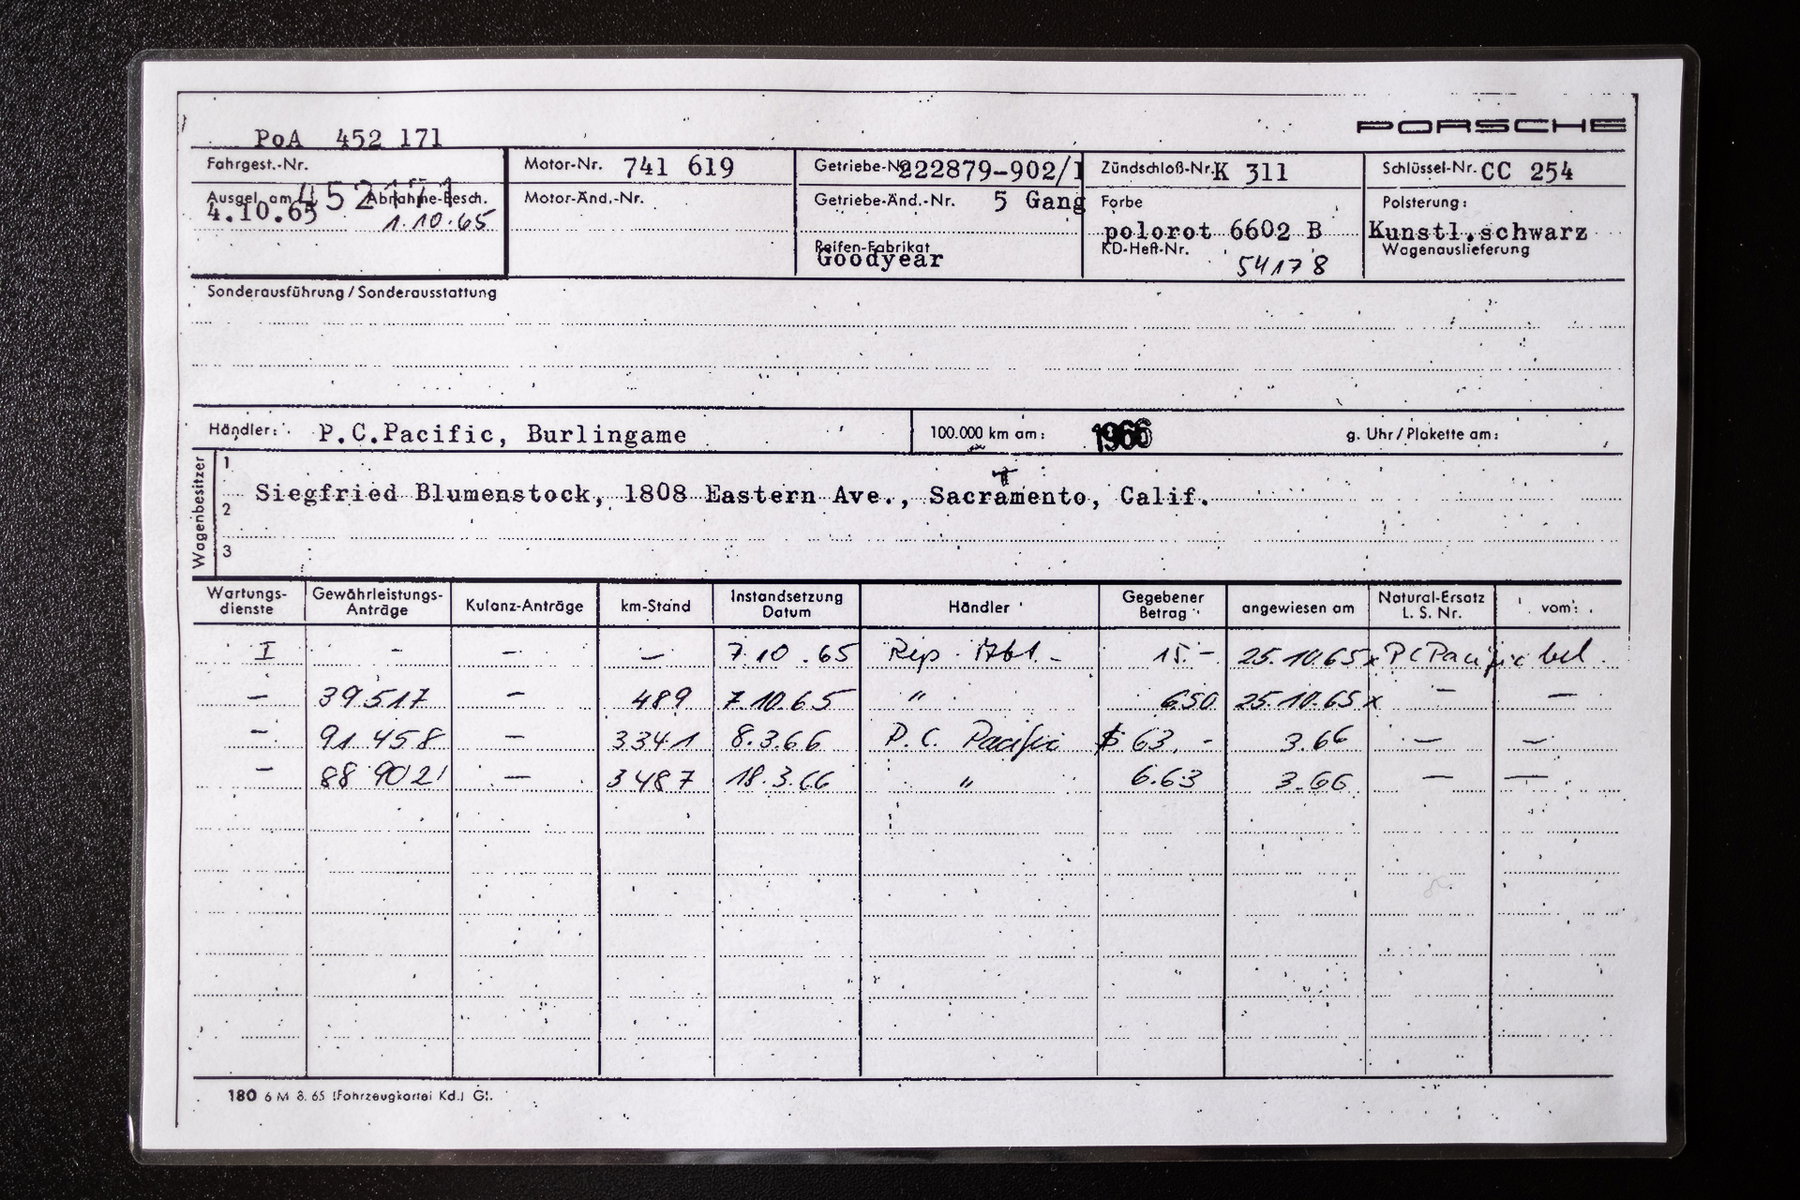 PoA 452 171
PORSCHE
Fahrgest.-Nr.
Motor-Nr. 741 619
Getriebe-Nr. 222879-902/1
Zündschloß-Nr. K 311
Schlüssel-Nr. CC 254
452171
Ausgel. am 4.10.65
Abnahme-Besch. 1.10.65
Motor-Änd.-Nr.
Getriebe-Änd.-Nr. 5 Gang
Farbe
Polsterung:
polorot 6602 B
Kunstl.schwarz
Reifen-Fabrikat
Goodyear
KD-Heft-Nr. 54178
Wagenauslieferung
Sonderausführung/Sonderausstattung
Händler: P.C.Pacific, Burlingame
100.000 km am: 1966
g. Uhr/Plakette am:
Wagenbesitzer
1
Siegfried Blumenstock, 1808 Eastern Ave., Sacramento, Calif.
2
3
Wartungs-dienste Gewährleistungs-Anträge Kulanz-Anträge km-Stand Instandsetzung Datum Händler Gegebener Betrag angewiesen am Natural-Ersatz L. S. Nr. vom:
I - - - 7.10.65 Rep. Abt. - 15.- 25.10.65x PC Pacific bel.
- 39517 - 489 7.10.65 " 650 25.10.65x - -
- 91 458 - 3341 8.3.66 P.C. Pacific $ 63.- 3.66 - -
- 88 902 - 3487 18.3.66 " 6.63 3.66 - -
180 6 M 8. 65 (Fahrzeugkartei Kd.) G!.